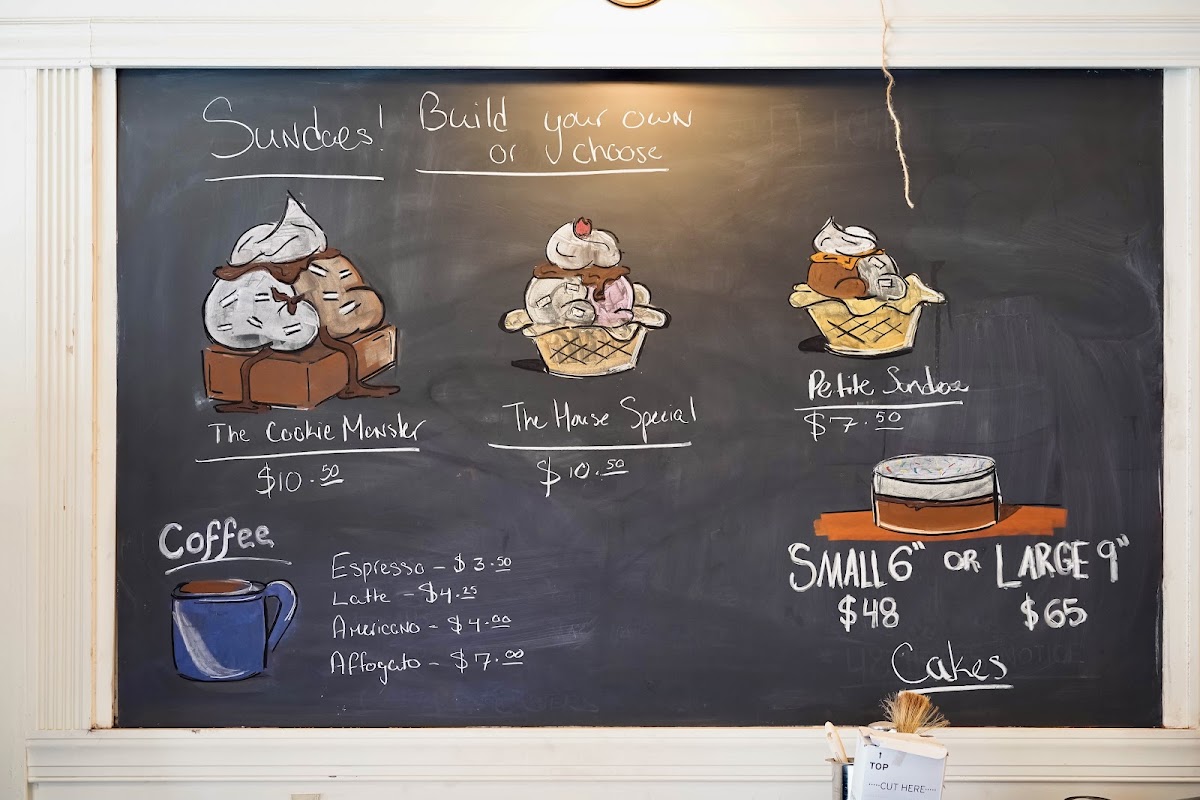 Sundaes!
Build your own
or choose
The Cookie Monster
$10.50
The House Special
$10.50
Petite Sundae
$7.50
Coffee
Espresso - $3.50
Latte - $4.25
Americano - $4.00
Affogato - $7.00
SMALL 6" OR LARGE 9"
$48 $65
Cakes
TOP
CUT HERE